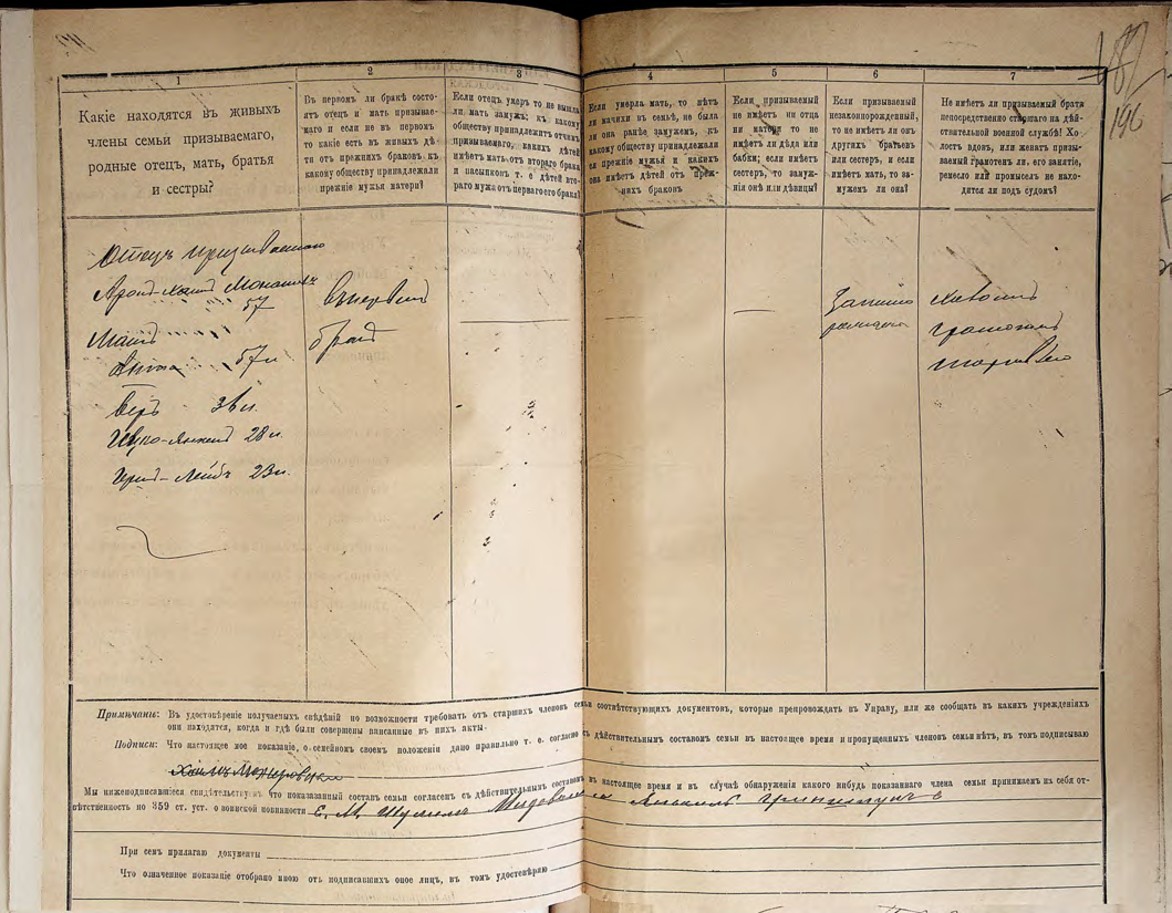 187
196
1
2
3
4
5
6
7
Какіе находятся въ живыхъ
члены семьи призываемаго,
родные отецъ, мать, братья
и сестры?
Въ первомъ ли бракѣ состо-
ятъ отецъ и мать призывае-
маго и если не въ первомъ
то какіе есть въ живыхъ дѣ-
ти отъ прежнихъ браковъ къ
какому обществу принадлежали
прежніе мужья матери?
Если отецъ умеръ то не вышла
ли мать замужъ; къ какому
обществу принадлежитъ отчимъ
призываемаго, какихъ дѣтей
имѣетъ мать отъ втораго брака
и пасынковъ т. е. дѣтей вто-
раго мужа отъ перваго его брака?
Если умерла мать, то нѣтъ
ли мачихи въ семьѣ, не была
ли она ранѣе замужемъ, къ
какому обществу принадлежали
ея прежніе мужья и какихъ
она имѣетъ дѣтей отъ преж-
нихъ браковъ
Если призываемый
не имѣетъ ни отца
ни матери то не
имѣетъ ли дѣда или
бабки; если имѣетъ
сестеръ, то замуж-
нія онѣ или дѣвицы?
Если призываемый
незаконнорожденный,
то не имѣетъ ли онъ
другихъ братьевъ
или сестеръ, и если
имѣетъ мать, то за-
мужемъ ли она?
Не имѣетъ ли призываемый брата
непосредственно старшаго на дѣй-
ствительной военной службѣ! Хо-
лостъ вдовъ, или женатъ призы-
ваемый грамотенъ ли. его занятіе,
ремесло или промыселъ не нахо-
дится ли подъ судомъ?
Отецъ призываемаго
57
въ первомъ
бракѣ
57 л.
Беръ 36 л.
28 л.
Лейбъ 23 л.
холостъ
грамотенъ
Примѣчаніе: Въ удостовѣреніе получаемыхъ свѣдѣній по возможности требовать отъ старшихъ членовъ семьи соотвѣтствующихъ документовъ, которые препровождать въ Управу, или же сообщать въ какихъ учрежденіяхъ
они находятся, когда и гдѣ были совершены вписанные въ нихъ акты.
Подписи: Что настоящее мое показаніе, о семейномъ своемъ положеніи дано правильно т. е. согласно съ дѣйствительнымъ составомъ семьи въ настоящее время и пропущенныхъ членовъ семьи нѣтъ, въ томъ подписываю
Мы нижеподписавшіеся свидѣтельствуемъ что показазанный составъ семьи согласенъ съ дѣйствительнымъ составомъ въ настоящее время и въ случаѣ обнаруженія какого нибудь показаннаго члена семьи принимаемъ на себя от-
вѣтственность по 359 ст. уст. о воинской повинности Е. М.
При семъ прилагаю документы
Что означенное показаніе отобрано мною отъ подписавшихъ оное лицъ, въ томъ удостовѣряю